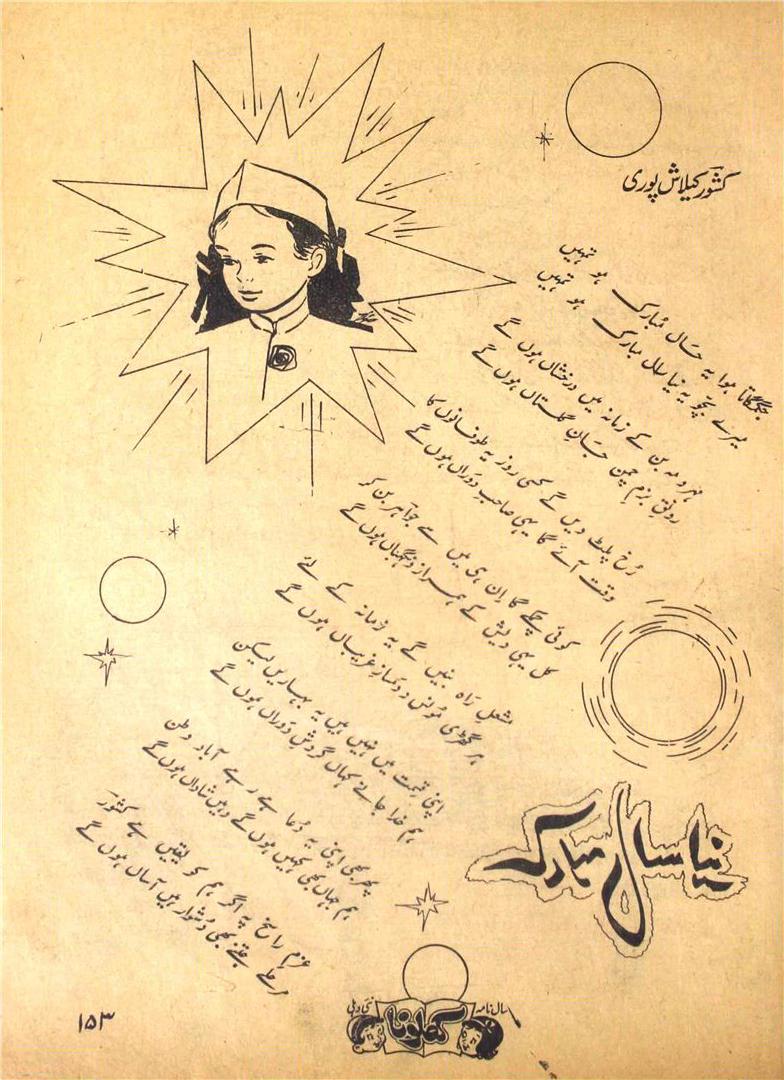 کشور کیلاش پوری
جگمگاتا ہوا یہ سال مبارک ہو تمہیں
میرے بچو یہ نیا سال مبارک ہو تمہیں
مہر و مہ بن کے زمانہ میں درخشاں ہوں گے
رونقِ بزمِ چمن جانِ گلستاں ہوں گے
رُخ پلٹ دیں گے کسی روز یہ طوفانوں کا
وقت آئے گا یہی صاحبِ دوراں ہوں گے
کوئی چمکے گا اِن ہی میں سے جواہر بن کر
کل یہی دیش کے ہمراز و نگہباں ہوں گے
مشعلِ راہ بنیں گے یہ زمانہ کے لئے
ہر گھڑی مونس و دمسازِ غریباں ہوں گے
اپنی قسمت میں نہیں ہیں یہ بہاریں لیکن
ہم خدا جانے کہاں گردشِ دوراں ہوں گے
پھر بھی اپنی یہ دُعا ہے رہے آباد وطن
ہم جہاں بھی کہیں ہوں گے وہیں شاداں ہوں گے
عزمِ راسخ پہ اگر ہم کو یقیں ہے کشور
مرحلے جتنے بھی دُشوار ہیں آساں ہوں گے
نیا سال مبارک
سال نامہ کھلونا نئی دہلی
۱۵۳